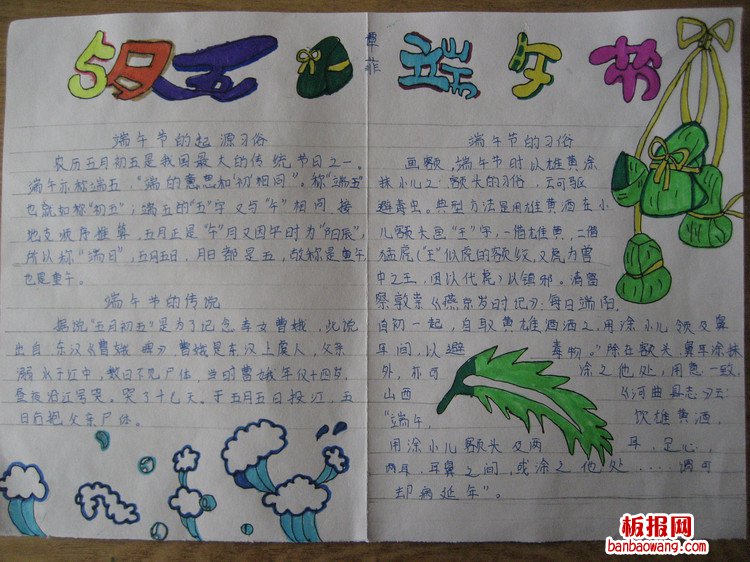 5月五
端午节
覃菲
端午节的起源习俗
农历五月初五是我国最大的传统节日之一。
端午亦称端五，“端的意思和‘初’相同”。称“端五”
也就如称“初五”；端五的“五”字又与“午”相同 按
地支顺序推算，五月正是“午”月又因午时为“阳辰”，
所以称“端日”，五月五日，月日都是五，故称是重午
也是重午。
端午节的传说
据说“五月初五”是为了记念孝女曹娥，此说
出自 东汉《曹娥 碑》曹娥是东汉上虞人，父亲
溺水于江中，数日不见尸体，当时曹娥年仅十四岁，
昼夜沿江号哭，哭了十七天。于五月五日投江，五
日后抱父亲尸体。
端午节的习俗
画额，端午节时以雄黄涂
抹小儿之额头的习俗，云可驱
避毒虫。典型方法是用雄黄酒在小
儿额头画“王”字，一借雄黄，二借
猛虎（“王”似虎的额纹，又虎为兽
中之王，因以代虎）以镇邪。清富
察敦崇《燕京岁时记》：每日端阳，
自初一起，自取黄雄酒洒之，用涂小儿领及鼻
耳间，以避 毒物。”除在额头、鼻耳涂抹
外，亦可 涂之他处，用意一致，
山西 《河曲县志》云：
“端午， 饮雄黄酒，
用涂小儿额头及两 耳、足心，
两耳、耳鼻之间，或涂之他处……谓可
却病延年”。
板报网
banbaowang.com